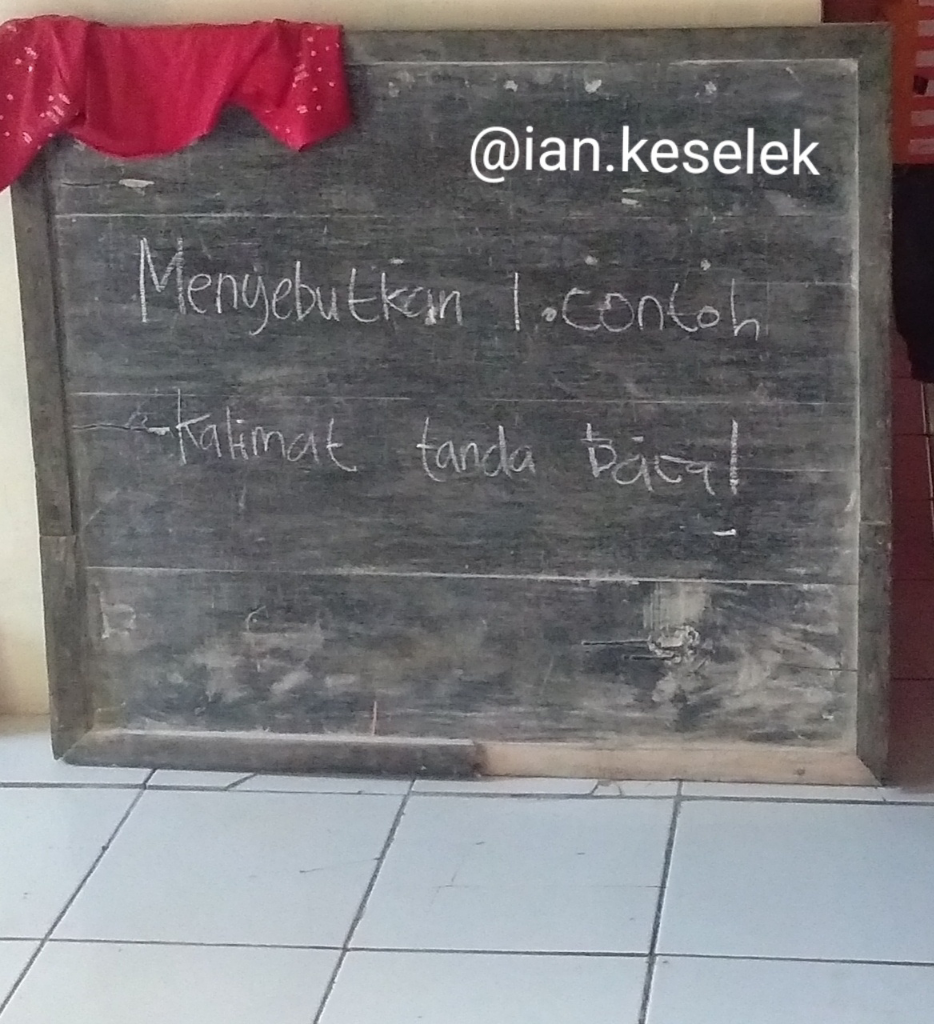 @ian.keselek
Menyebutkan 1.contoh
-kalimat tanda Baca!